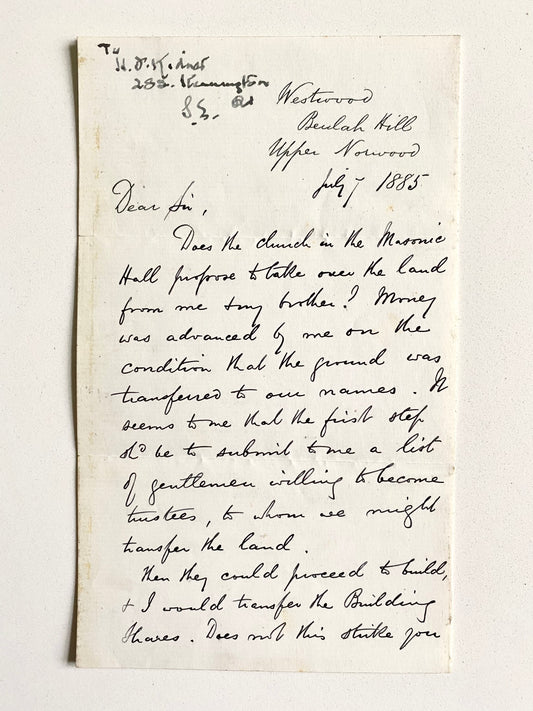 To
H. J.
233. Kennington
Rd
S.E.
Westwood
Beulah Hill
Upper Norwood
July 7 1885
Dear Sir,
Does the church in the Masonic
Hall propose to take over the land
from me & my brother? Money
was advanced by me on the
condition that the ground was
transferred to our names. It
seems to me that the first step
shd be to submit to me a list
of gentlemen willing to become
trustees, to whom we might
transfer the land.
Then they could proceed to build,
& I would transfer the Building
Shares. Does not this strike you